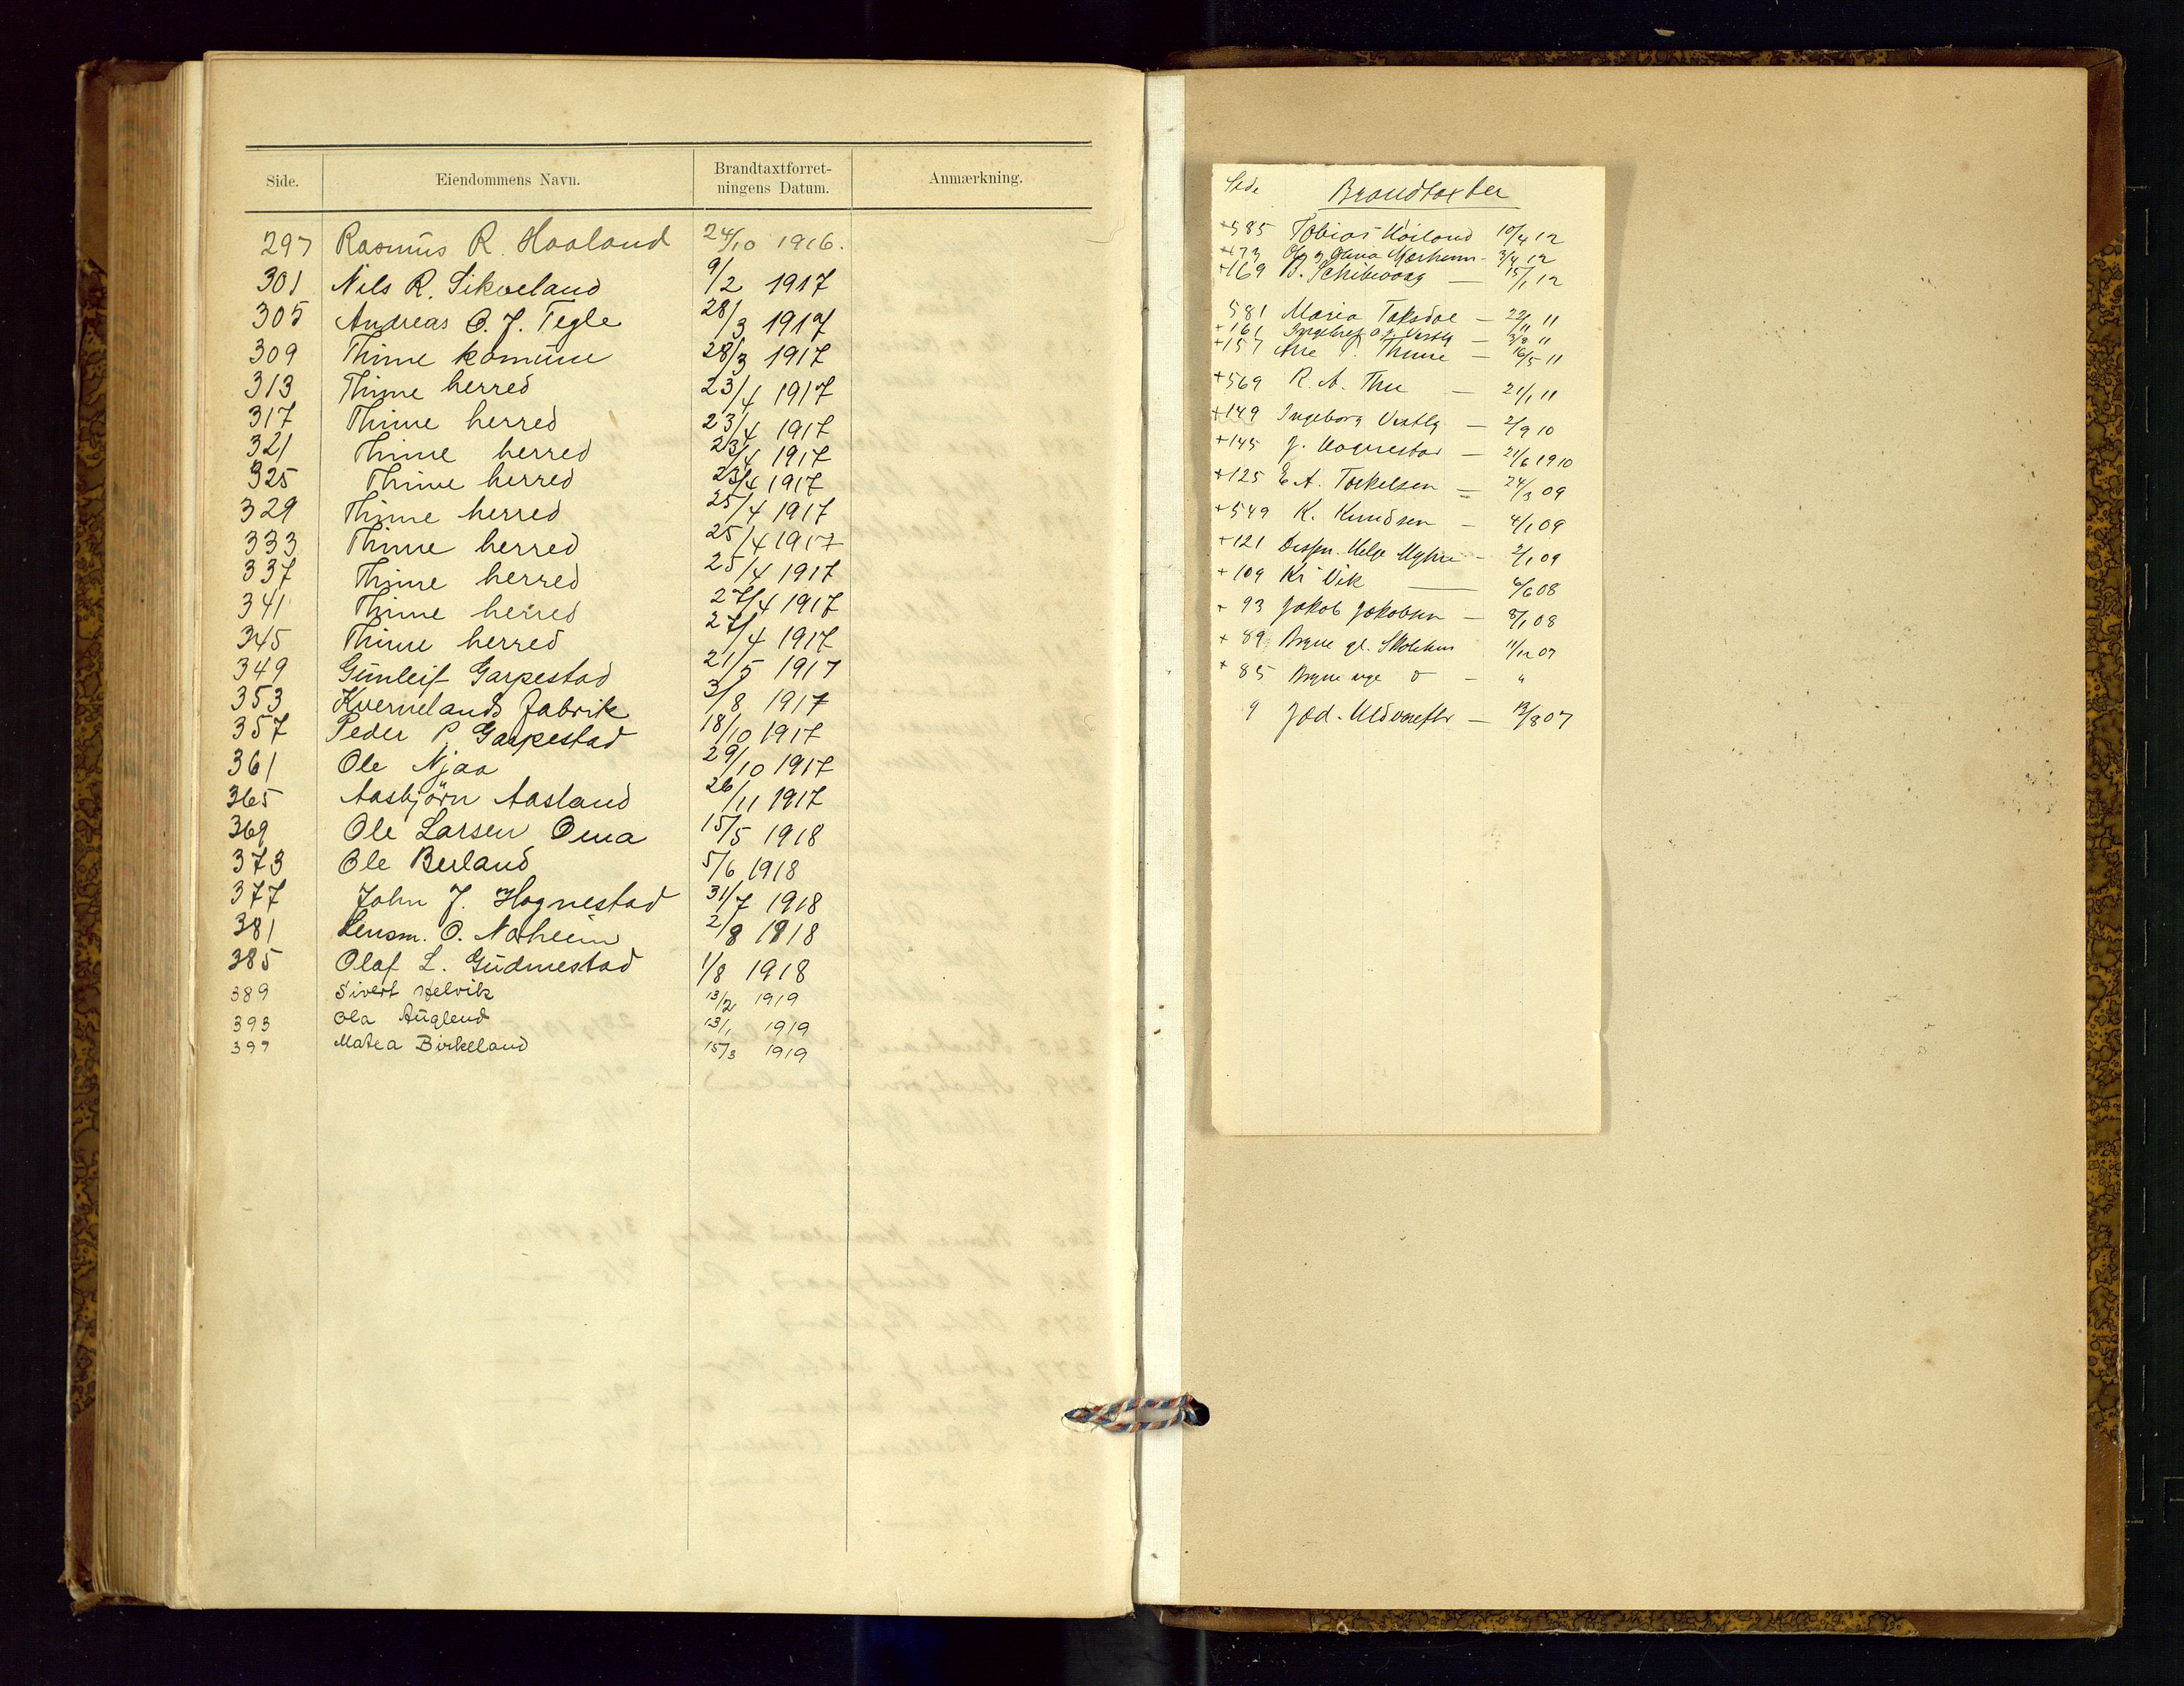 Side. Eiendommens Navn. Brandtaxtforret-ningens Datum. Anmærkning.
297 Rasmus R. Haaland 24/10 1916.
301 Nils R. Sikveland 9/2 1917
305 Andreas O. J. Tegle 28/3 1917
309 Thime komūne 28/3 1917
313 Thime herred 23/4 1917
317 Thime herred 23/4 1917
321 Thime herred 23/4 1917
325 Thime herred 23/4 1917
329 Thime herred 25/4 1917
333 Thime herred 25/4 1917
337 Thime herred 25/4 1917
341 Thime herred 27/4 1917
345 Thime herred 27/4 1917
349 Gunleif Garpestad 21/5 1917
353 Kvernelands fabrik 3/8 1917
357 Peder P Garpestad 18/10 1917
361 Ole Njaa 29/10 1917
365 Aasbjörn Aasland 26/11 1917
369 Ole Larsen Oma 15/5 1918
373 Ole Berland 5/6 1918
377 John J. Hognestad 31/7 1918
381 Lensm. O. Norheim 2/8 1918
385 Olaf L. Gudmestad 1/8 1918
389 Sivert Helvik 13/2 1919
393 Ola Auglend 13/1 1919
397 Matea Birkeland 15/3 1919
Side Brandtaxter
+585 Tobias Höiland 10/4 12
+173 Olivia 3/4 12
+169 B. 15/1 12
581 Maria Taksdal — 11
+161 — 11
+157 Ane Thime — 16/5 11
+569 R. A. Thu — 21/1 11
+149 Ingeborg Vestly — 2/9 10
+145 J. Hognestad — 21/6 1910
+125 E. A. Torkelsen — 24/3 09
+549 K. Knudsen — 4/1 09
+121 Helge 2/1 09
+109 Kr Vik — 6/6 08
+ 93 Jakob Jakobsen — 8/1 08
+ 89 Bryne gl. Skolehus 11/12 07
+ 85 Bryne nye d — "
9 Jæd. Uldvarefbr — 12/8 07